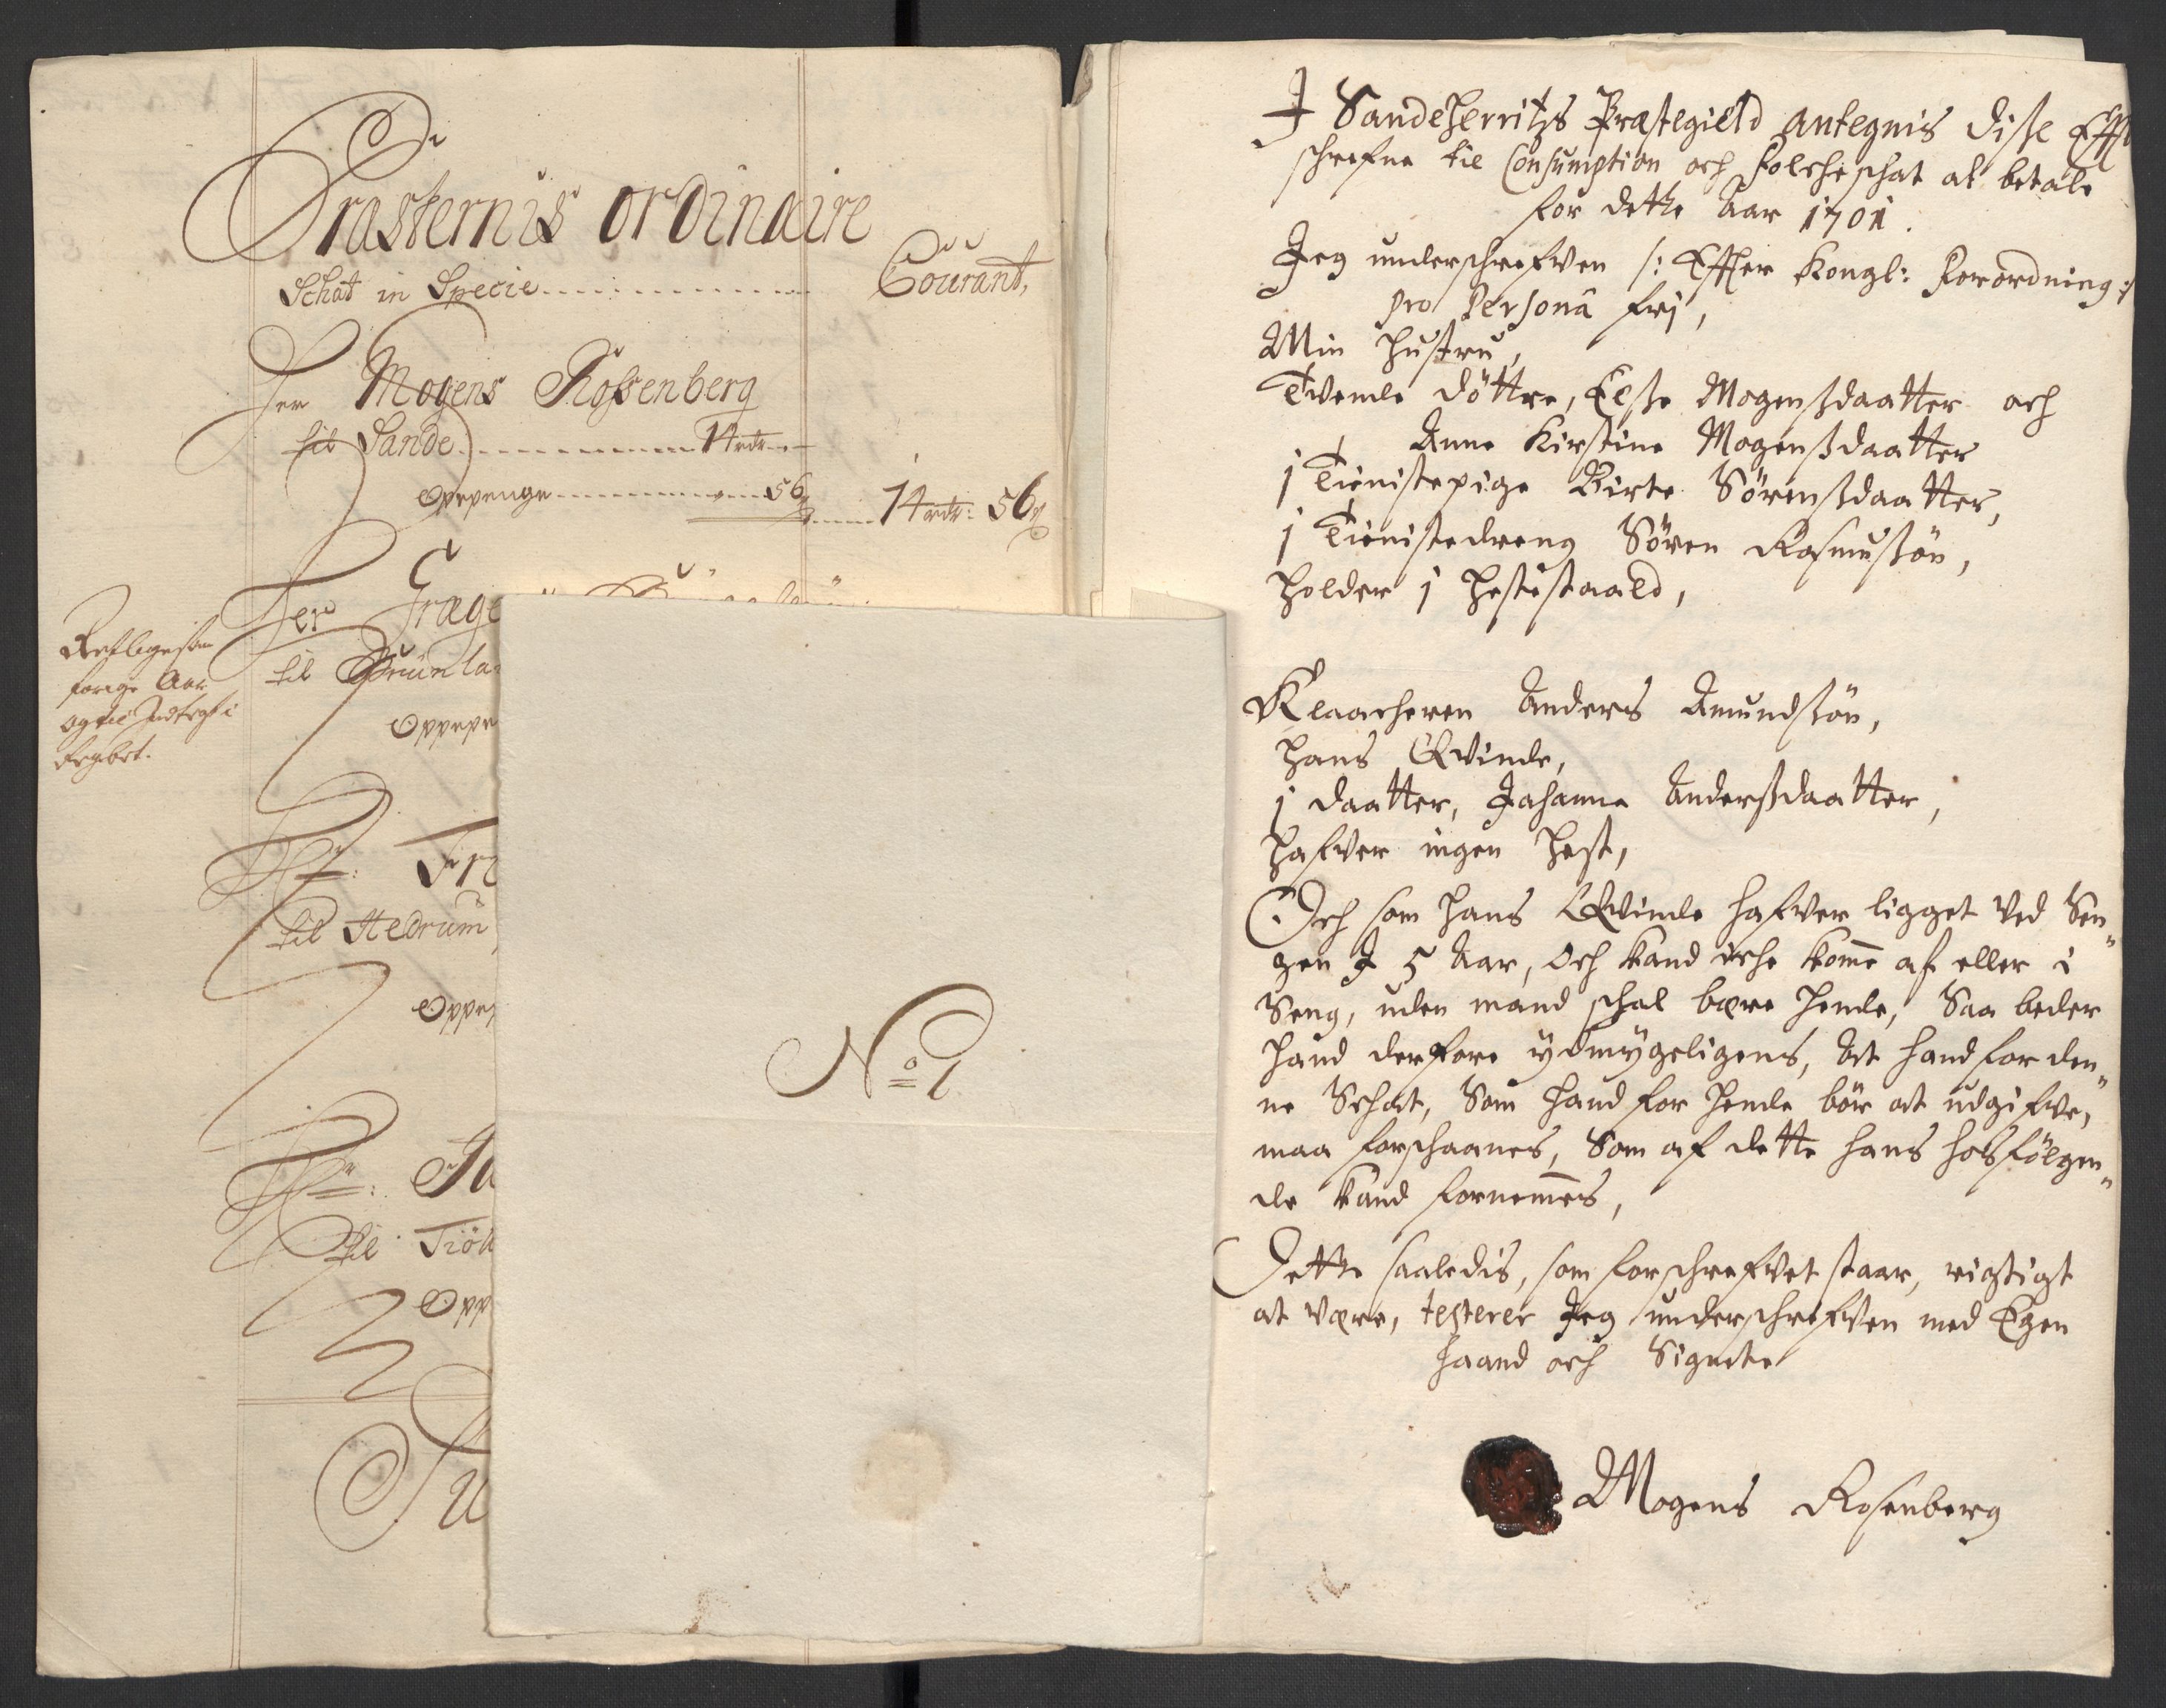 Præsternis ordinaire
Schat in Specie
Courant,
Her Mogens Rossenberg
til Sande 14 rdr
Opepenge 56 β 14 rdr: 56 β
Her Fræge
til Brunla
Oppepe
forige Aar
Hr:
til Hedrum
Oppe
Hr:
til Tiöll
Opp
Su
No 1
I Sandeherritzs Præstegield antegnis disse Effter
schrefne til Consumption och Folcheschat at betale
for dette Aar 1701.
Jeg underschrefven /: Effter Kongl: Forordning :/
pro Persona frj,
Min Hustru,
Tvende döttre, Else Mogensdaatter och
Anne Kirstine Mogensdaatter
1 Tienistepige Birte Sörensdaatter,
1 Tienistedreng Sören Rasmussön,
Holder 1 Hestestaald,
Klaacheren Anders Amundssön,
Hans Qvinde,
1 daatter, Johanne Andersdaatter,
Hafver ingen Hest,
Och som Hans Qvinde hafver ligget ved Sen"
gen I 5 Aar, Och kand iche kome af eller i
Seng, uden mand schal bære Hende, Saa beder
Hand derfore ydmygeligens, At hand for den"
ne Schat, Som Hand for Hende bör at udgifve,
maa forschaanes, Som af dette hans hosfölgen"
de kand fornemes,
Dette saaledis, som forschrefvet staar, rigtigt
at være, testerer Jeg underschrefven med Egen
Haand och Signete
Mogens Rosenberg